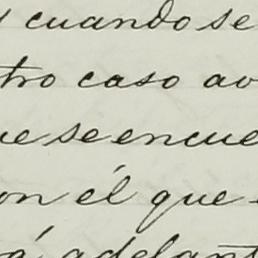 y cuando se
tro caso av
ue se encue
on él que
á adelant